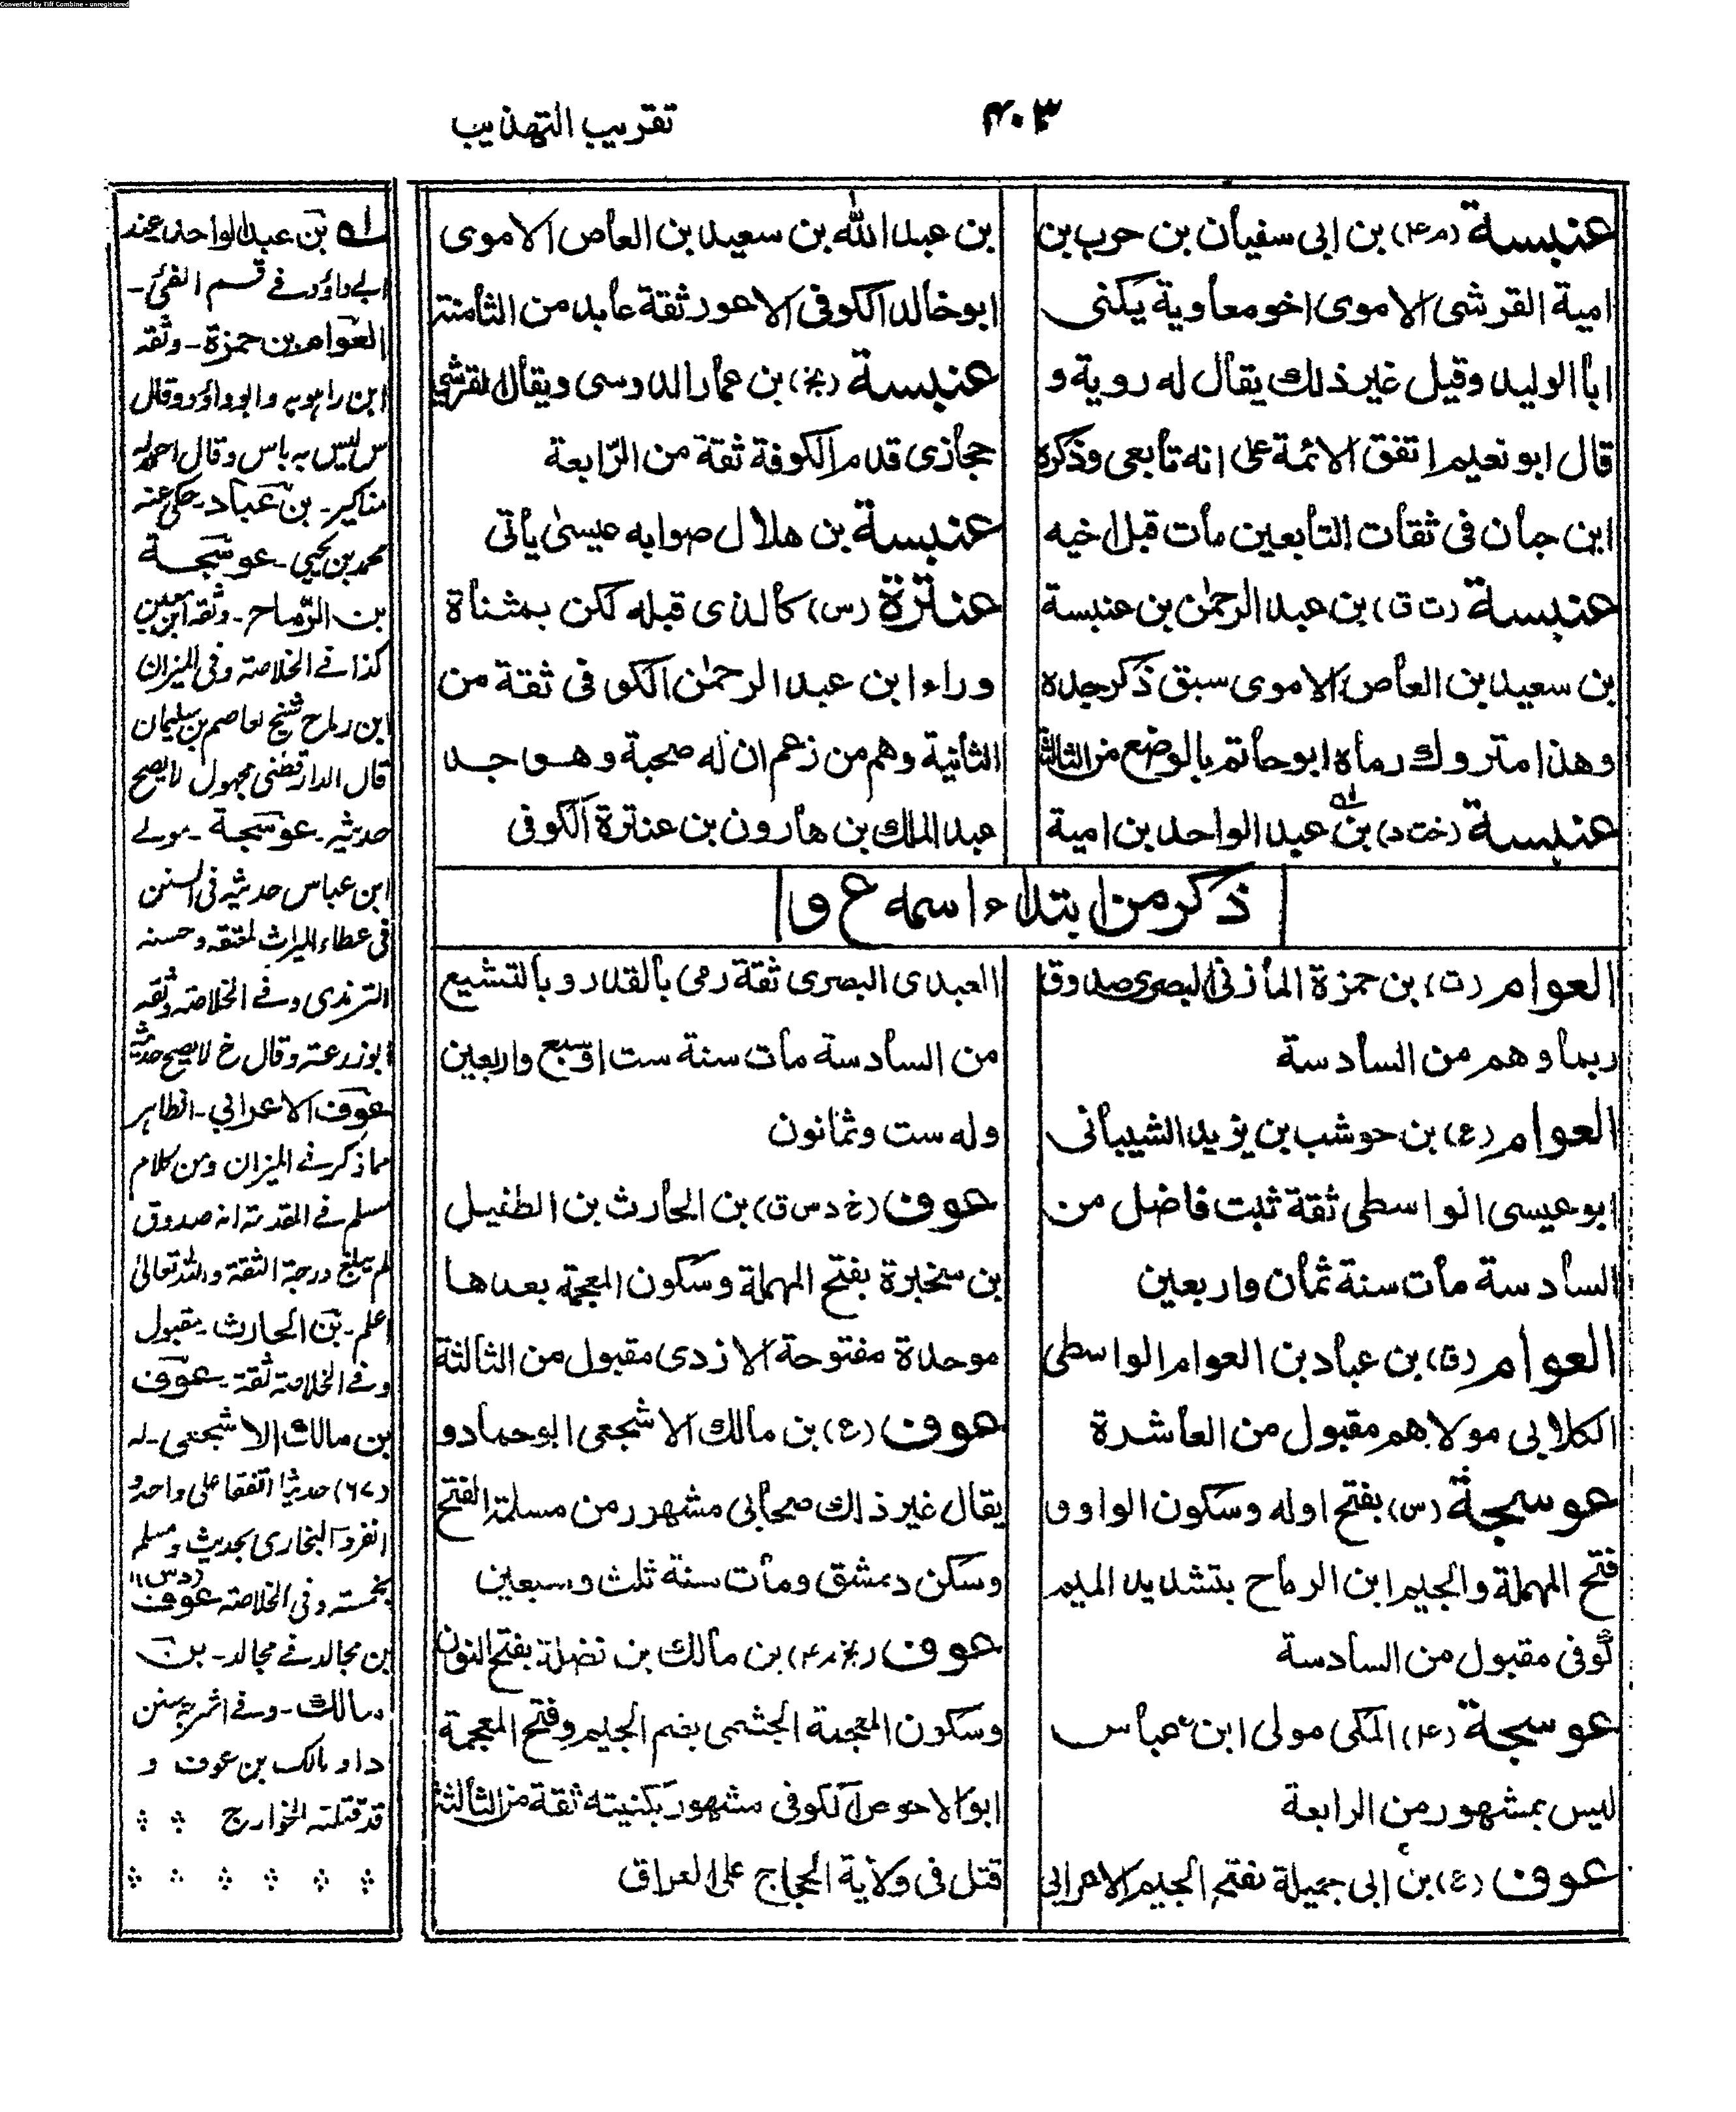 Converted by Tiff Combine - unregistered
۴۰۳
تقريب التهذيب
عنبسة (م ۴) بن ابى سفيان بن حرب بن
امية القرشى الاموى اخو معاوية يكنى
ابا الوليد وقيل غير ذلك يقال له روية و
قال ابو نعيم اتفق الائمة على انه تابعى وذكره
ابن حبان فى ثقات التابعين مات قبل اخيه
عنبسة (ت ق) بن عبد الرحمٰن بن عنبسة
بن سعيد بن العاص الاموى سبق ذكر جده
وهذا متروك رماه ابو حاتم بالوضع من الثالثة
عنبسة (خت د) بن عبد الواحد بن امية
بن عبد الله بن سعيد بن العاص الاموى
ابو خالد الكوفى الاعور ثقة عابد من الثامنة
عنبسة (بخ) بن عمار الدوسى ويقال القرشى
حجازى قدم الكوفة ثقة من الرّابعة
عنبسة بن هلال صوابه عيسىٰ يأتى
عنترة (س) كالذى قبله لكن بمثناة
وراء ابن عبد الرحمٰن الكوفى ثقة من
الثانية وهم من زعم ان له صحبة وهو جد
عبد الملك بن هارون بن عنترة الكوفى
ذكر من ابتداء اسمه ع و
العوام (ت) بن حمزة المازنى البصرى صدوق
ربما وهم من السادسة
العوام (ع) بن حوشب بن يزيد الشيبانى
ابو عيسى الواسطى ثقة ثبت فاضل من
السادسة مات سنة ثمان واربعين
العوام (ق) بن عباد بن العوام الواسطى
الكلابى مولاهم مقبول من العاشرة
عوسجة (س) بفتح اوله وسكون الواو و
فتح المهملة والجيم ابن الرماح بتشديد الميم
كوفى مقبول من السادسة
عوسجة (۴) المكى مولى ابن عباس
ليس بمشهور من الرابعة
عوف (ع) بن ابى جميلة بفتح الجيم الاعرابى
العبدى البصرى ثقة رمى بالقدر وبالتشيع
من السادسة مات سنة ست او سبع واربعين
وله ست وثمانون
عوف (خ د س ق) بن الحارث بن الطفيل
بن سخبرة بفتح المهملة وسكون المعجمة بعدها
موحدة مفتوحة الازدى مقبول من الثالثة
عوف (ع) بن مالك الاشجعى ابو حماد و
يقال غير ذلك صحابى مشهور من مسلمة الفتح
وسكن دمشق ومات سنة ثلث وسبعين
عوف (بخ م ۴) بن مالك بن نضلة بفتح النون
وسكون المعجمة الجشمى بضم الجيم وفتح المعجمة
ابو الاحوص الكوفى مشهور بكنيته ثقة من الثالثة
قتل فى ولاية الحجاج على العراق
له بن عبد الواحد عند
ابى داؤد فے قسم الفئ-
العوام بن حمزة - وثقه
ابن راهويه وابو داؤد وقال
س ليس به باس وقال احمد له
مناكير- بن عباد- حكى عنه
محمد بن يحيى - عوسجة
بن الرّماح - وثقه ابن معين
كذا فے الخلاصة وفى الميزان
ابن رماح شيخ لعاصم بن سليمان
قال الدارقطنى مجهول لا يصح
حديثه - عوسجة - مولے
ابن عباس حديثه فى السنن
فى عطاء الميراث لمعتقه وحسنه
الترمذى وفے الخلاصة وثقه
ابو زرعة وقال خ لا يصح حديثه
عوف الاعرابى - الظاهر
مما ذكر فے الميزان ومن كلام
مسلم فے المقدمة انه صدوق
لم يبلغ درجة الثقة والله تعالىٰ
اعلم - بن الحارث - مقبول
وفے الخلاصة ثقة - عوف
بن مالك الاشجعى - له
(۶۷) حديثا اتفقا على واحد و
انفرد البخارى بحديث ومسلم
بخمسة وفى الخلاصة عوف (د س)
بن مجالد فے مجالد - بن
مالك - وفے اشربة سنن
داو مالك بن عوف و
قد قتلته الخوارج